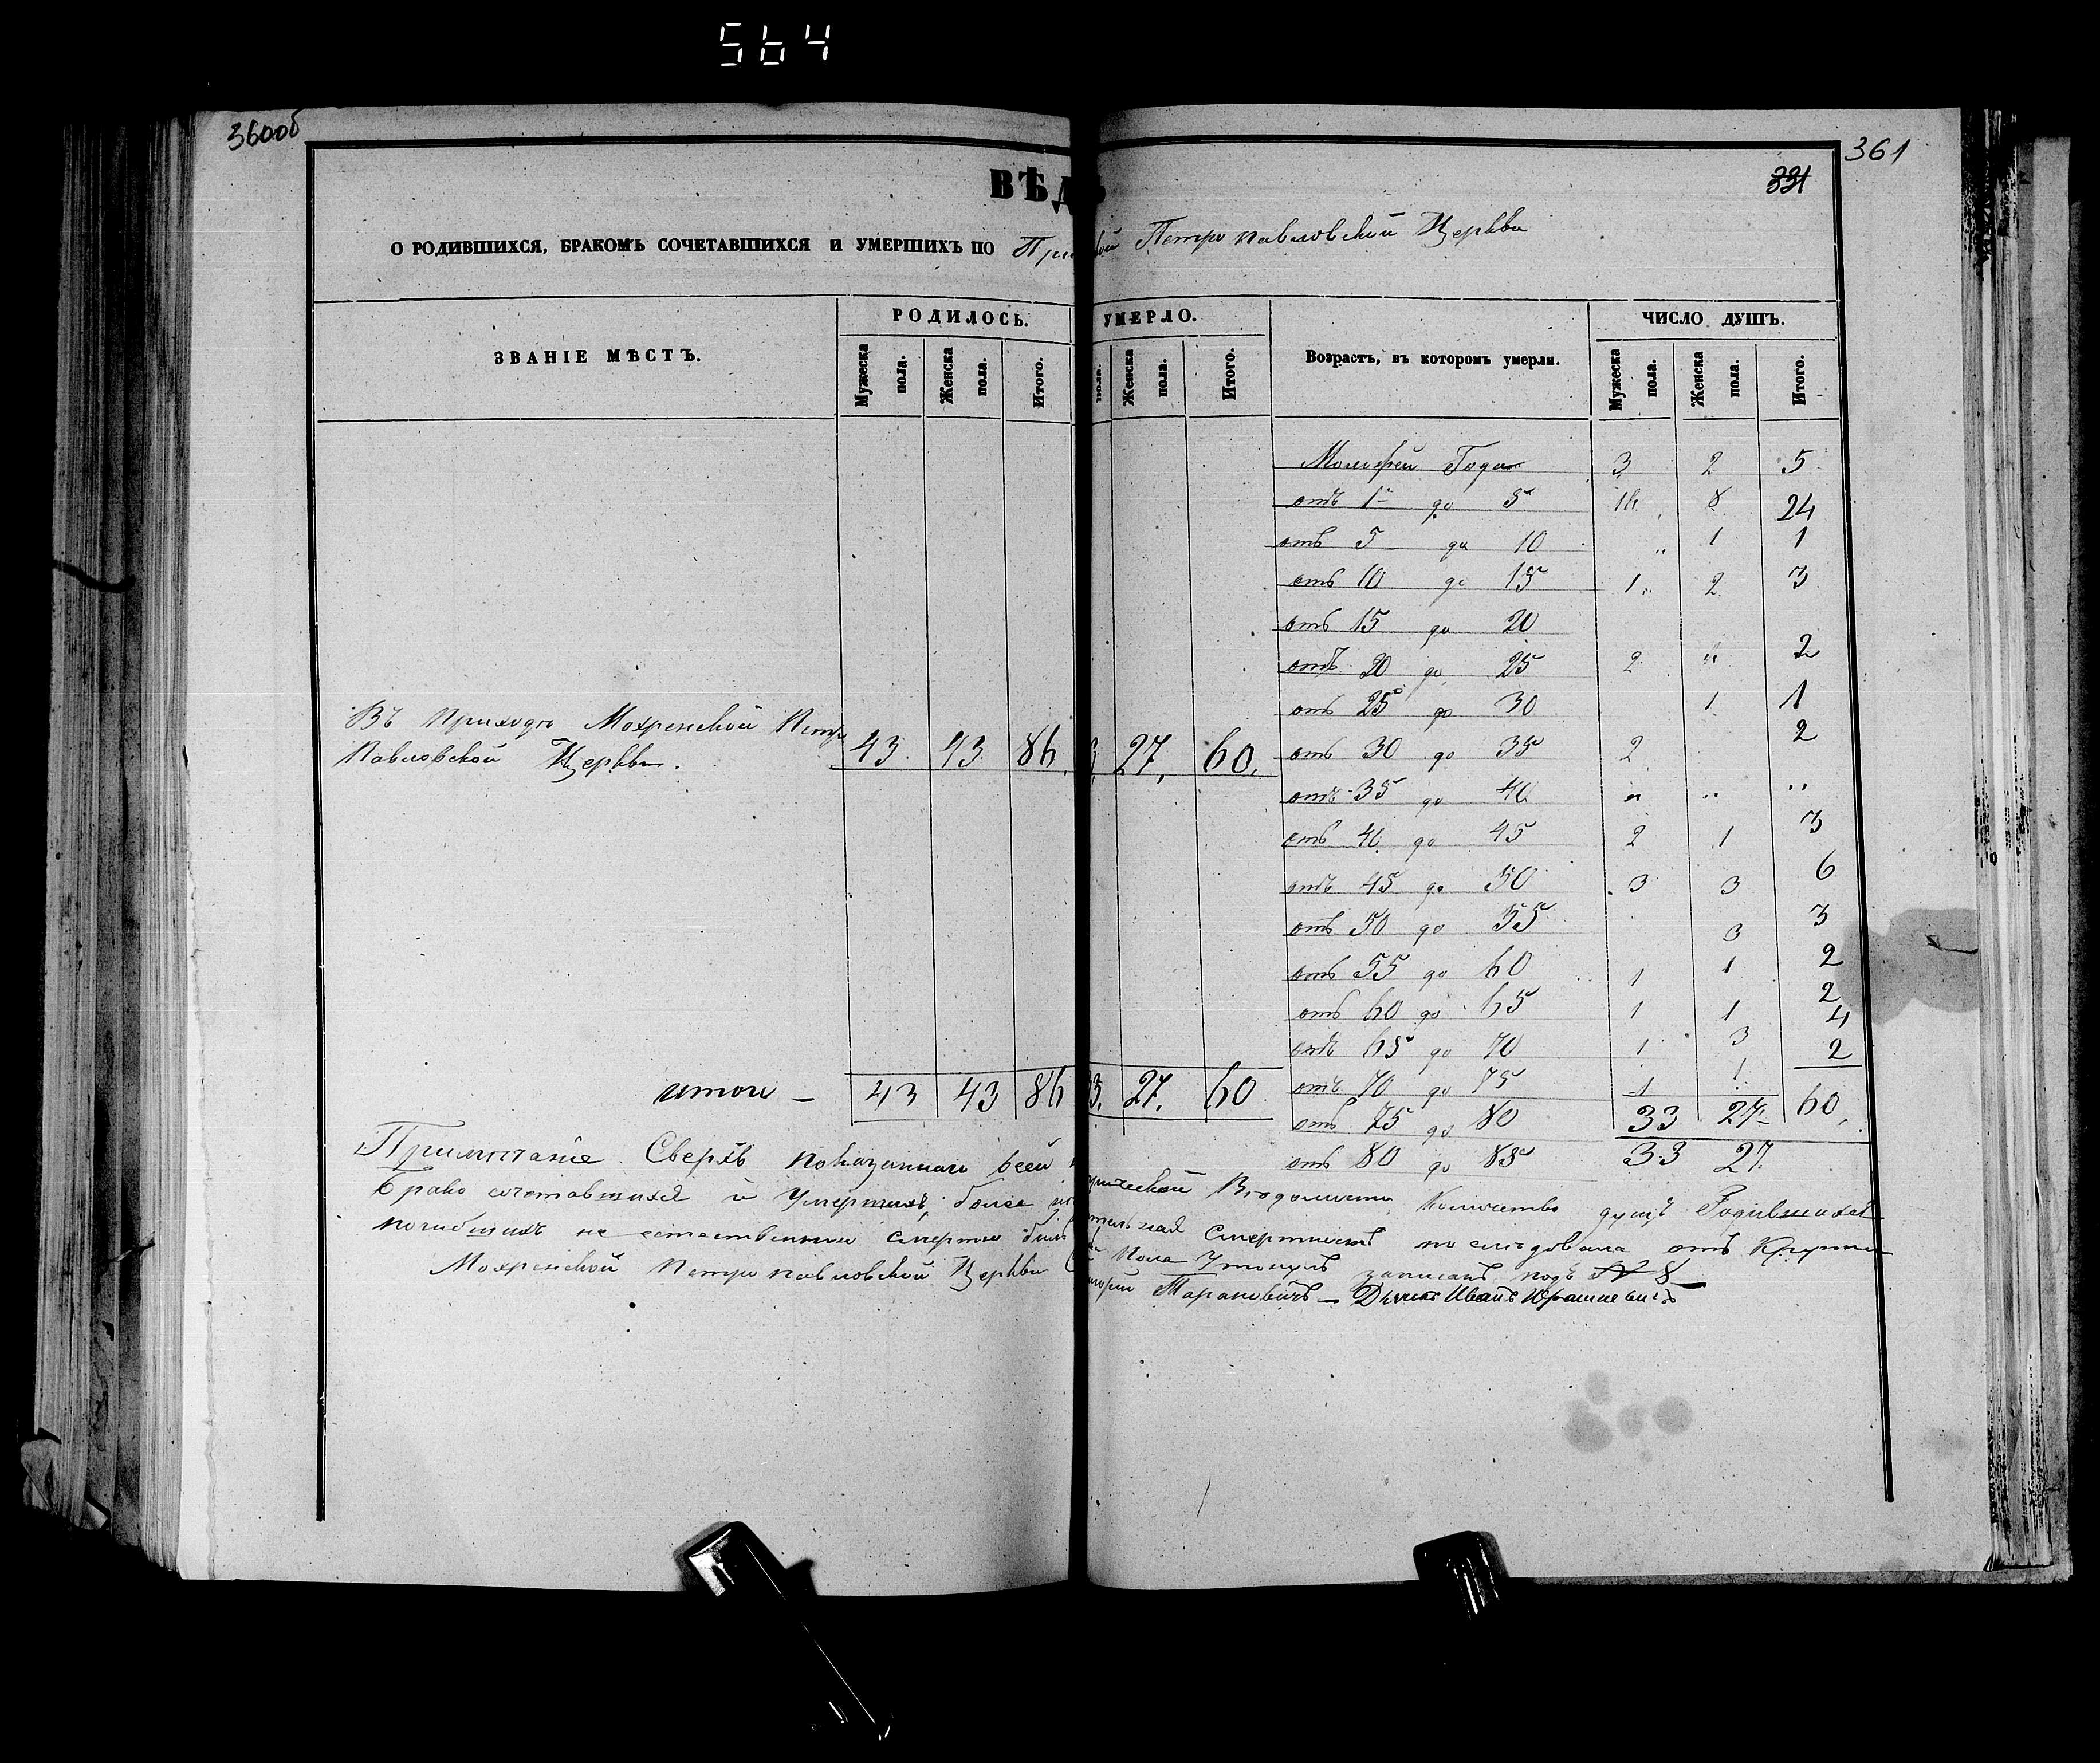 564
360об
361
331
ВѢД
О РОДИВШИХСЯ, БРАКОМЪ СОЧЕТАВШИХСЯ И УМЕРШИХЪ ПО При
вой Петро павловской Церкви
ЗВАНІЕ МѢСТЪ.
РОДИЛОСЬ.
Мужеска пола.
Женска пола.
Итого.
УМЕРЛО.
пола.
Женска пола.
Итого.
Возрастъ, въ которомъ умерли.
ЧИСЛО ДУШЪ.
Мужеска пола.
Женска пола.
Итого.
Въ Приходѣ Мохренской Петро
Павловской Церкви. 43. 43. 86. 3. 27. 60.
итого – 43 43 86 33. 27. 60
Года 3 2 5
отъ 1 до 5 16 8 24
отъ 5 до 10 „ 1 1
отъ 10 до 15 1 „ 2 3
отъ 15 до 20
отъ 20 до 25 2 „ 2
отъ 25 до 30 1 1
отъ 30 до 35 2 2
отъ 35 до 40 „ „ „
отъ 40 до 45 2 1 3
отъ 45 до 50 3 3 6
отъ 50 до 55 3 3
отъ 55 до 60 1 1 2
отъ 60 до 65 1 1 2
отъ 65 до 70 1 3 4
отъ 70 до 75 1 1 2
отъ 75 до 80 33 27 60.
отъ 80 до 85 33 27.
Примѣчаніе. Сверхъ показаннаго всей
Брако сочетавшихся и Умершихъ, болѣе
погибшихъ не естественною смертію былъ
Мохренской Петро павловской Церкви
рической Вѣдомости Количества душъ Родившихся
тельная Смертность последовала отъ
Пола Утонулъ записанъ подъ № 8 –
Тарановичъ – Дьячекъ Иванъ